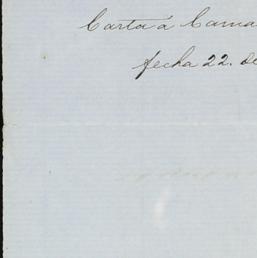 Carta á Cama
fecha 22. de